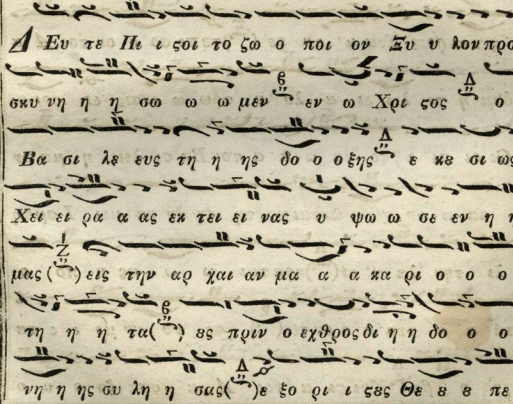 Δ Ευ τε Πι ι ϛοι το ζω ο ποι ον Ξυ υ λον προ
σκυ νη η η σω ω ω μεν εν ω Χρι ϛος ο
Βα σι λε ευς τη η ης δο ο οξης ε κȣ σι ως
Χει ει ρα α ας εκ τει ει νας υ ψω ω σε εν η η
μας ( ) εις την αρ χαι αν μα α α κα ρι ο ο ο
τη η η τα( ) ȣς πριν ο εχθρος δι η η δο ο ο
νη η ης συ λη η σας( )ε ξο ρι ι ϛȣς Θε ȣ ȣ πε